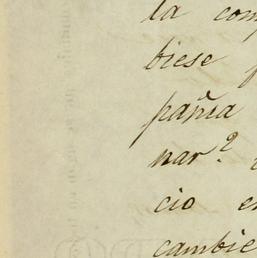 la com
biese
pañia
nar?
cio en
cambie